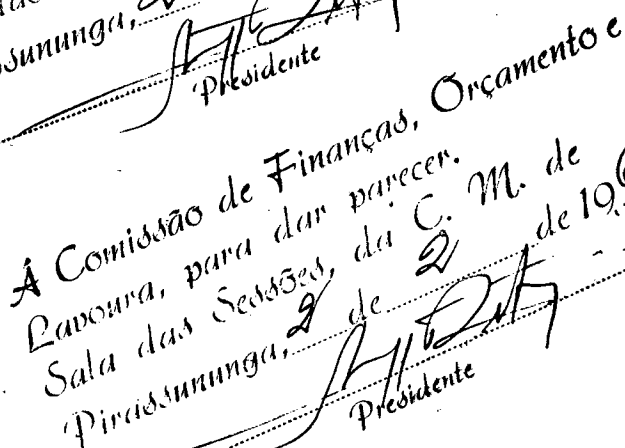 ssununga,
Presidente
Á Comissão de Finanças, Orçamento e
Lavoura, para dar parecer.
Sala das Sessões, da C. M. de
Pirassununga, 2 de 2 de 196
Presidente